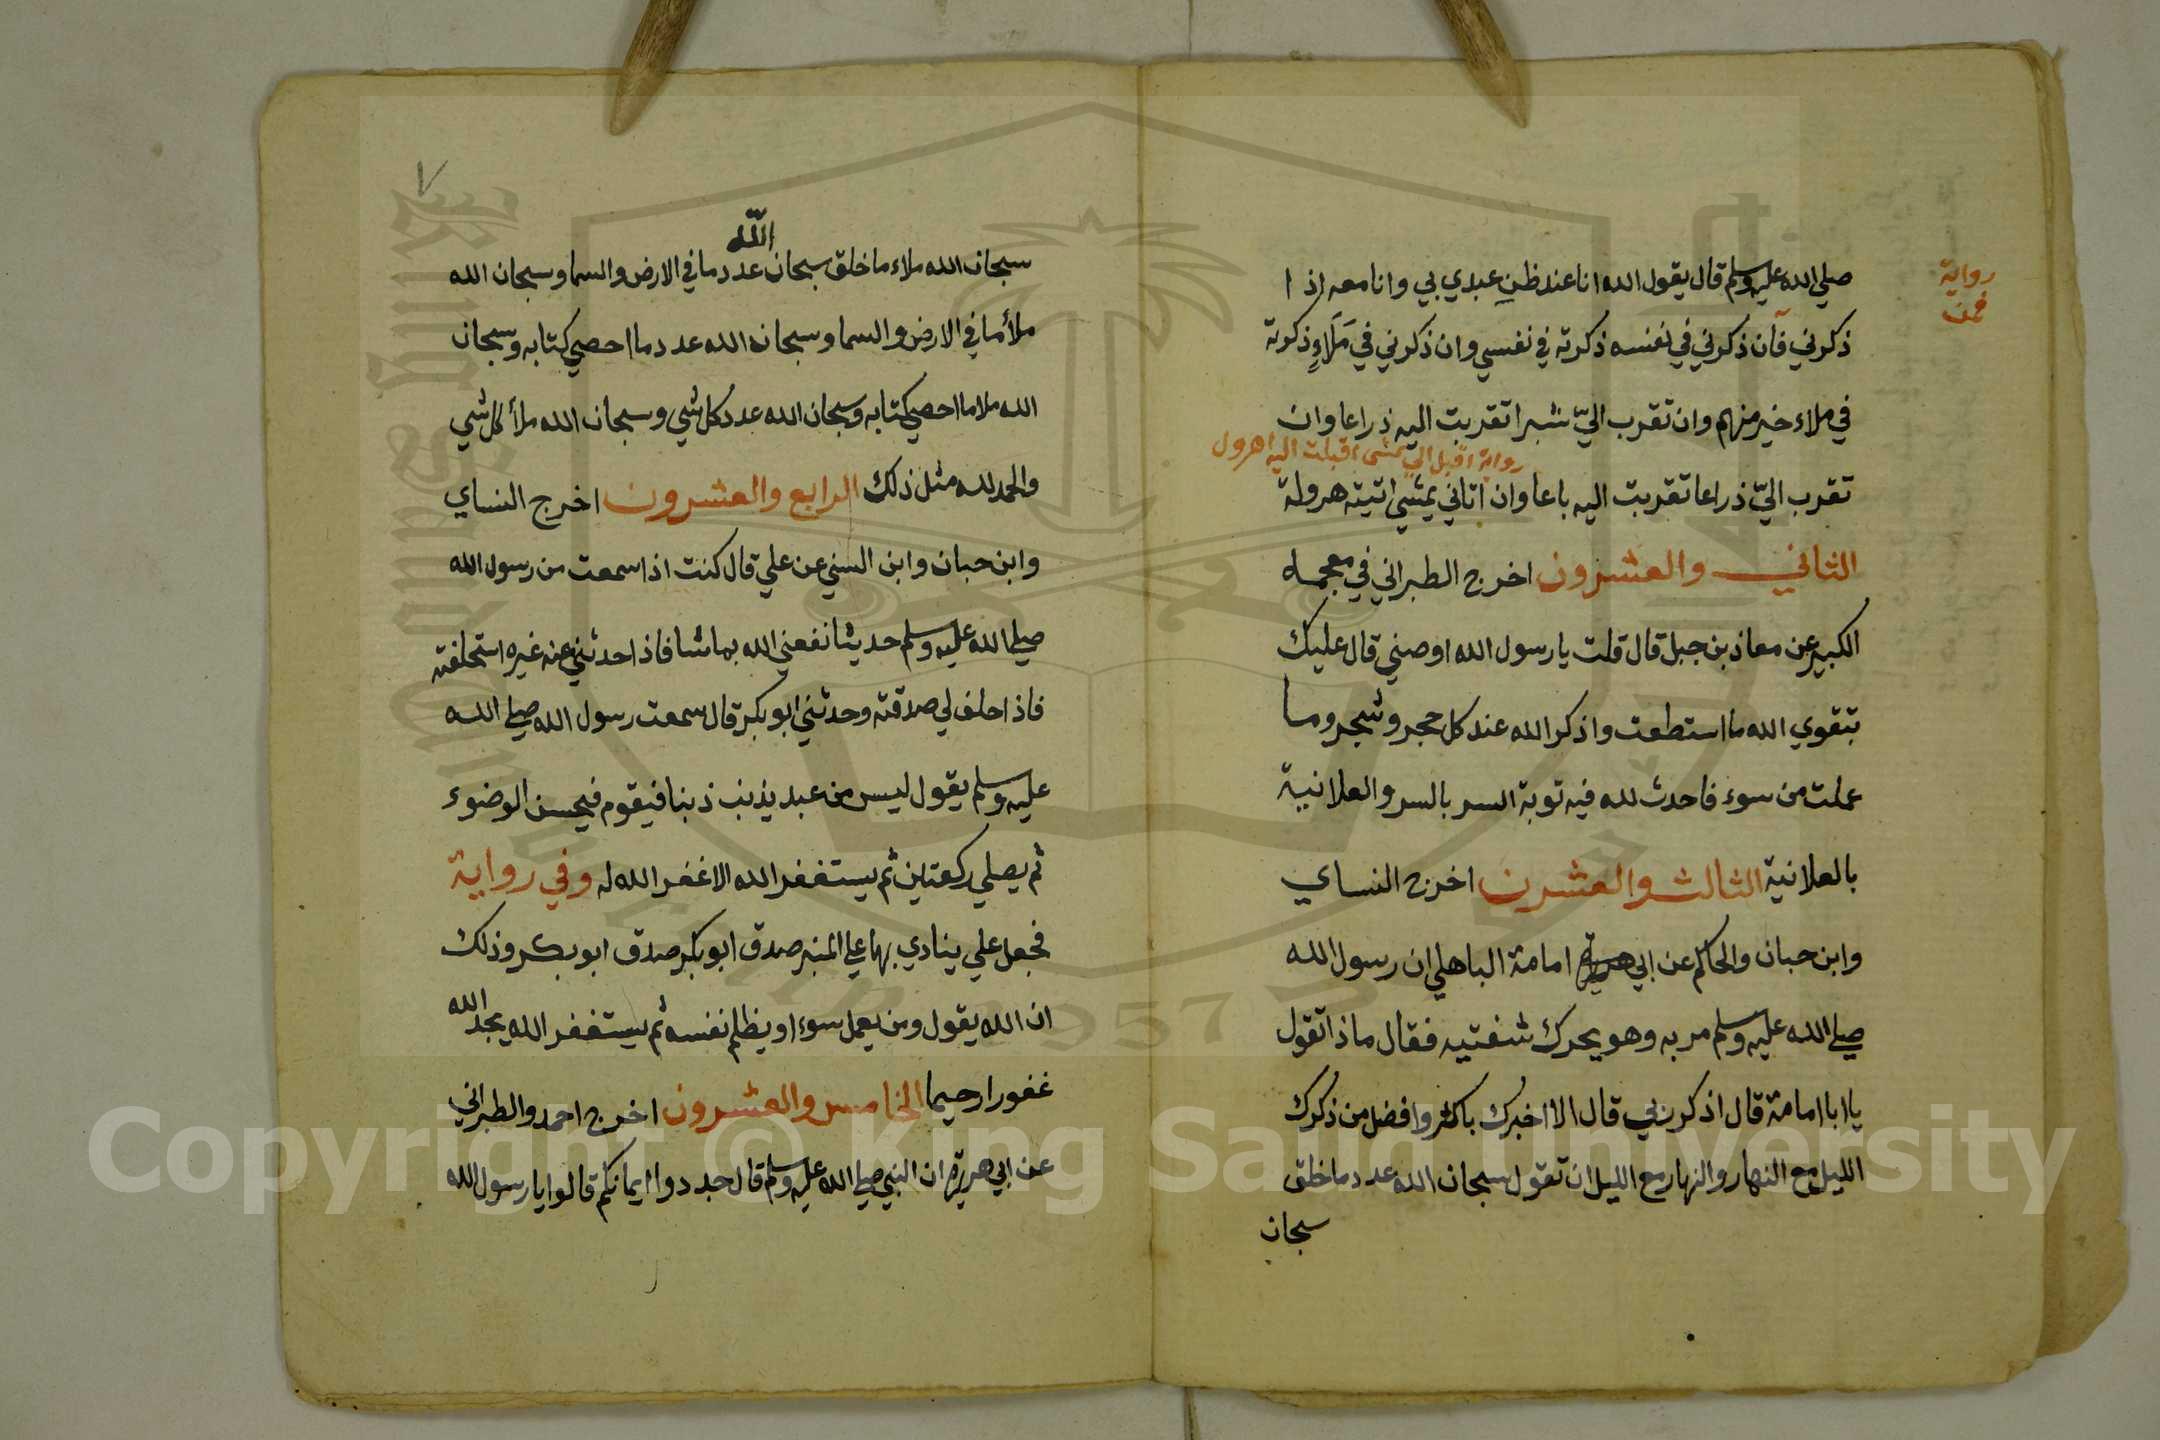 صلي الله عليه وسلم قال يقول الله انا عند ظن عبدي بي وانا معه اذا
رواية
فمن
ذكرني فان ذكرني في نفسه ذكرته في نفسي وان ذكرني في ملاءٍ ذكرته
في ملاء خير منهم وان تقرب اليّ شبرا تقربت اليه ذراعا وان
رواية اقبل الي يمشى اقبلت اليه اهرول
تقرب اليّ ذراعا تقربت اليه باعا وان اتاني يمشي اتيته هرولة
الثاني والعشرون اخرج الطبراني في معجمه
الكبير عن معاذ بن جبل قال قلت يا رسول الله اوصني قال عليك
بتقوي الله ما استطعت واذكر الله عند كل حجر وشجر وما
عملت من سوء فاحدث لله فيه توبة السر بالسر والعلانية
بالعلانية الثالث والعشرن اخرج النساي
وابن حبان والحاكم عن ابي امامة الباهلي ان رسول الله
صلي الله عليه وسلم مر به وهو يحرك شفتيه فقال ماذا تقول
يا ابا امامة قال اذكر ربي قال الا اخبرك باكثر وافضل من ذكرك
الليل مع النهار والنهار مع الليل ان تقول سبحان الله عدد ما خلق
سبحان
٧
الله
سبحان الله ملاء ما خلق سبحان عدد ما في الارض والسما وسبحان الله
ملأ ما في الارض والسما وسبحان الله عدد ما احصي كتابه وسبحان
الله ملا ما احصي كتابه وسبحان الله عدد كل شي وسبحان الله ملأ كل شي
والحمد لله مثل ذلك الرابع والعشرون اخرج النساي
وابن حبان وابن السني عن علي قال كنت اذا سمعت من رسول الله
صلي الله عليه وسلم حديثا نفعني الله بما شا فاذا حدثني عنه غيره استحلفته
فاذا حلف لي صدقته وحدثني ابو بكر قال سمعت رسول الله صلي الله
عليه وسلم يقول ليس من عبد يذنب ذنبا فيقوم فيحسن الوضوء
ثم يصلي ركعتين ثم يستغفر الله الا غفر الله له وفي رواية
فجعل علي ينادي بها علي المنبر صدق ابو بكر صدق ابو بكر وذلك
ان الله يقول ومن يعمل سوء او يظلم نفسه ثم يستغفر الله يجد الله
غفورا رحيما الخامس والعشرون اخرج احمد والطبراني
عن ابي هريرة ان النبي صلي الله عليه وسلم قال جددوا ايمانكم قالوا يا رسول الله
Copyright © King Saud University
King Saud University
1957